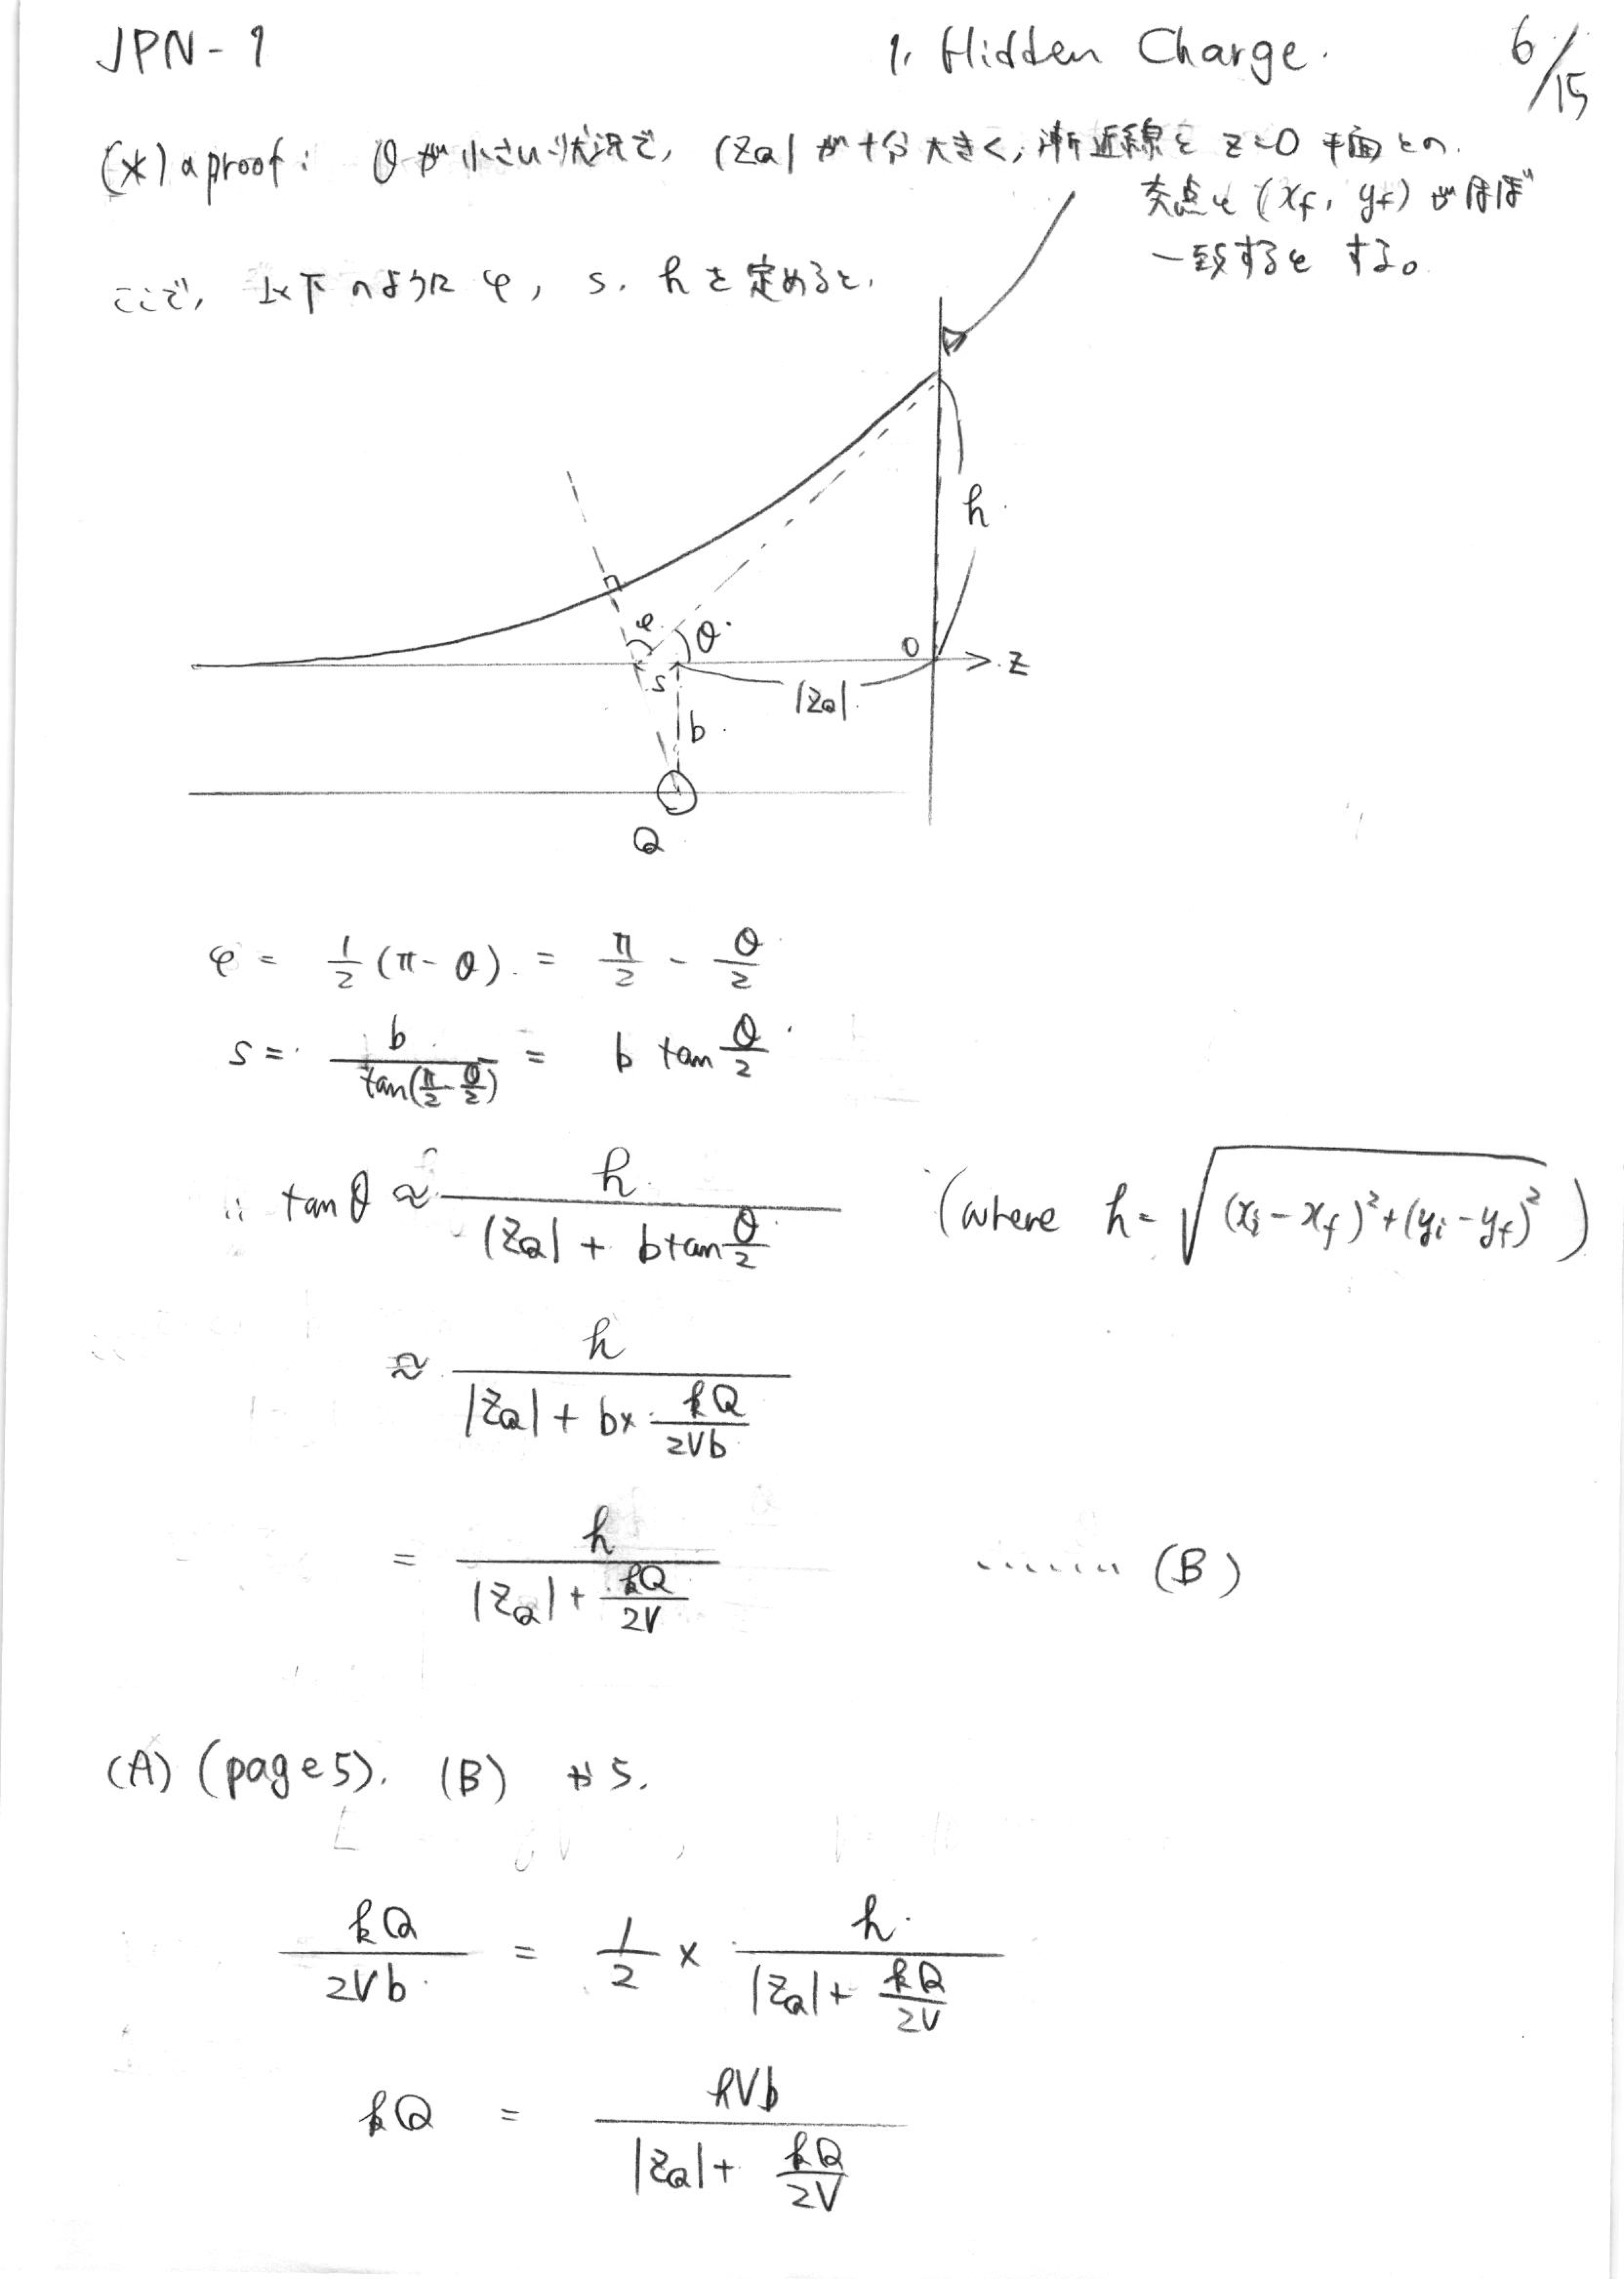 JPN-1
1. Hidden Charge.
6/15
(*) a proof: θが小さい状況で, |z_Q| が十分大きく, 漸近線と z=0 平面との
交点と (x_f, y_f) がほぼ
一致するとする。
ここで, 以下のように φ, s, h を定めると,
h
φ
θ
0
z
s
|z_Q|
b
Q
φ = 1/2 (π - θ) = π/2 - θ/2
s = b / tan(π/2 - θ/2) = b tan θ/2
∴ tan θ ≈ h / (|z_Q| + b tan θ/2) (where h = √((x_i - x_f)² + (y_i - y_f)²))
≈ h / (|z_Q| + b × kQ/2Vb)
= h / (|z_Q| + kQ/2V) ...... (B)
(A) (page 5), (B) から,
kQ/2Vb = 1/2 × h / (|z_Q| + kQ/2V)
kQ = hVb / (|z_Q| + kQ/2V)